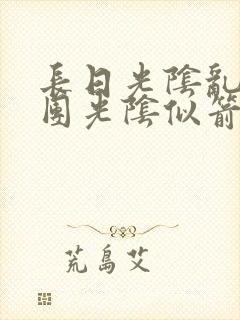 長日光陰亂
團光陰似箭
荒島艾